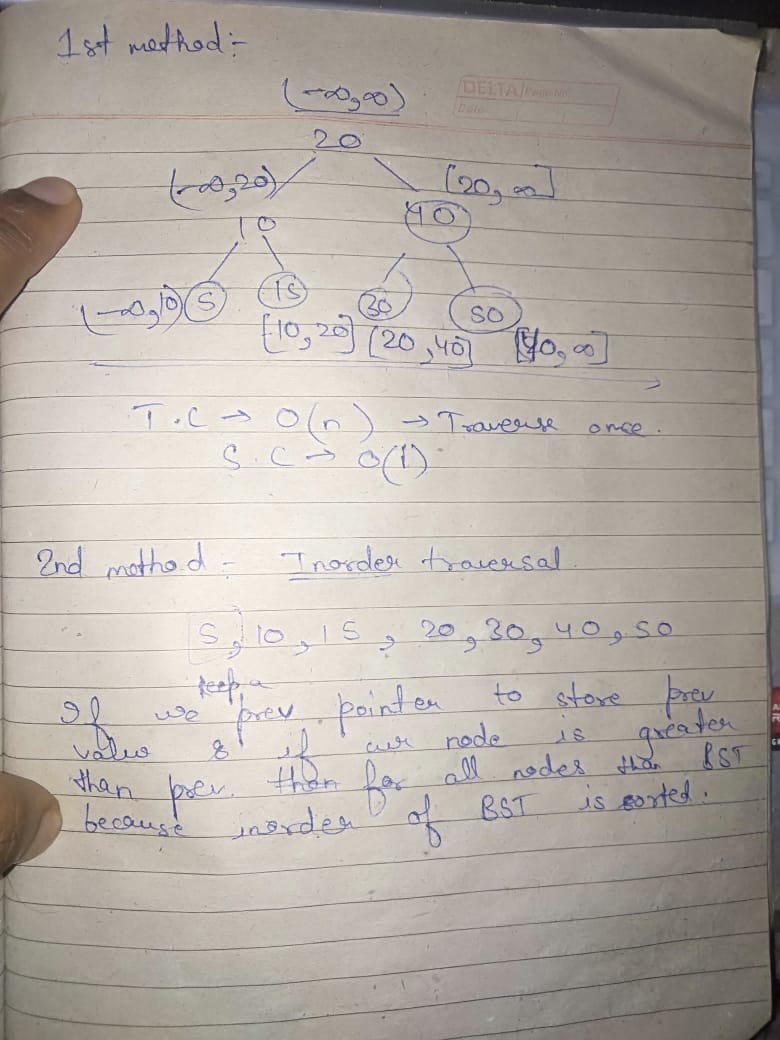 1st method:-
DELTA Page No.
Date
(-∞,∞)
20
(-∞,20) [20, ∞]
10 40
(-∞,10) 5 15 30 50
[10,20] [20,40] [40,∞]
T.C → O(n) → Traverse once.
S.C → O(1)
2nd method:- Inorder traversal.
5, 10, 15, 20, 30, 40, 50
keep a
If we prev pointer to store prev
value & if curr node is greater
than prev. than for all nodes than BST
because inorder of BST is sorted.